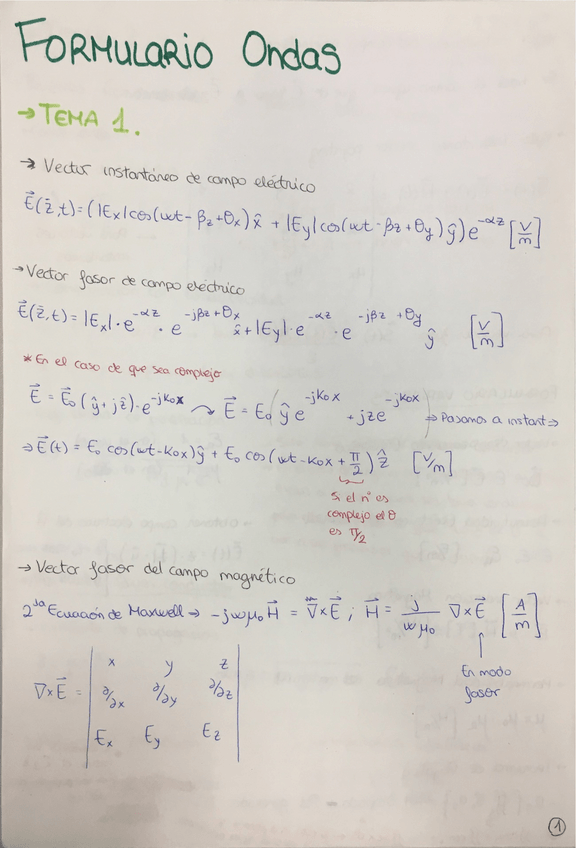 FORMULARIO Ondas
→ TEMA 1.
→ Vector instantáneo de campo eléctrico
E⃗(z̄,t) = (|Ex|cos(ωt - βz + θx) x̂ + |Ey|cos(ωt - βz + θy) ŷ) e^-αz [V/m]
→ Vector fasor de campo eléctrico
E⃗(z̄,t) = |Ex| · e^-αz · e^-jβz+θx x̂ + |Ey| · e^-αz · e^-jβz+θy ŷ [V/m]
* En el caso de que sea complejo
E⃗ = E⃗o (ŷ + jẑ) · e^-jkox ↝ E⃗ = Eo (ŷ e^-jkox + jze^-jkox) ⇒ Pasamos a instant ⇒
⇒ E⃗(t) = Eo cos(ωt - kox) ŷ + Eo cos(ωt - kox + π/2) ẑ [V/m]
Si el nº es
complejo el θ
es π/2
→ Vector fasor del campo magnético
2da Ecuación de Maxwell → -jωμo H⃗ = ∇⃗ x E⃗ ; H⃗ = j/ωμo ∇ x E⃗ [A/m]
En modo
fasor
∇ x E⃗ =
x y z
∂/∂x ∂/∂y ∂/∂z
Ex Ey Ez
1